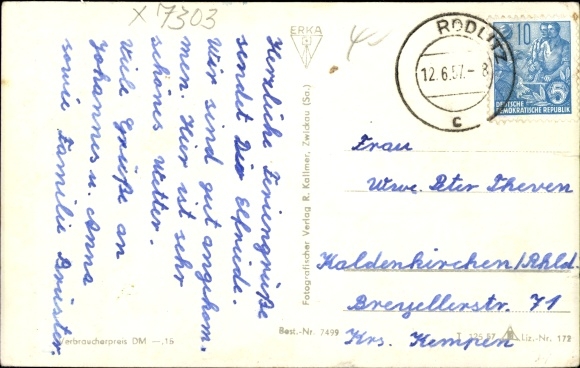 X 7303
ERKA
Herzliche Feriengrüße
sendet Dir Elfriede.
Wir sind gut angekom-
men. Hier ist sehr
schönes Wetter.
Viele Grüße an
Johannes u. Anna
sowie Familie Brüster.
Verbraucherpreis DM —,15
Best.-Nr. 7499
Fotografischer Verlag R. Kallmer, Zwickau (Sa.)
RÖDLITZ
12.6.57.-8
c
10
5
DEUTSCHE
DEMOKRATISCHE REPUBLIK
Frau
Wwe. Peter Theven
Kaldenkirchen/Rhld
Breyellerstr. 71
Krs. Kempen
T 125 57
Liz.-Nr. 172